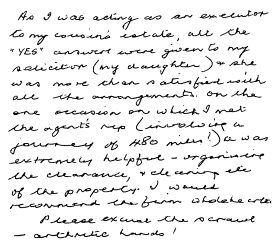 As I was acting as an executor
to my cousin's estate, all the
"YES" answers were given to my
solicitor (my daughter) & she
was more than satisfied with
all the arrangements. On the
one occasion on which I met
the agent's rep (involving a
journey of 480 miles!) he was
extremely helpful - organising
the clearance, & cleaning etc
of the property. I would
recommend the firm wholehearte
Please excuse the scrawl
- arthritic hands!